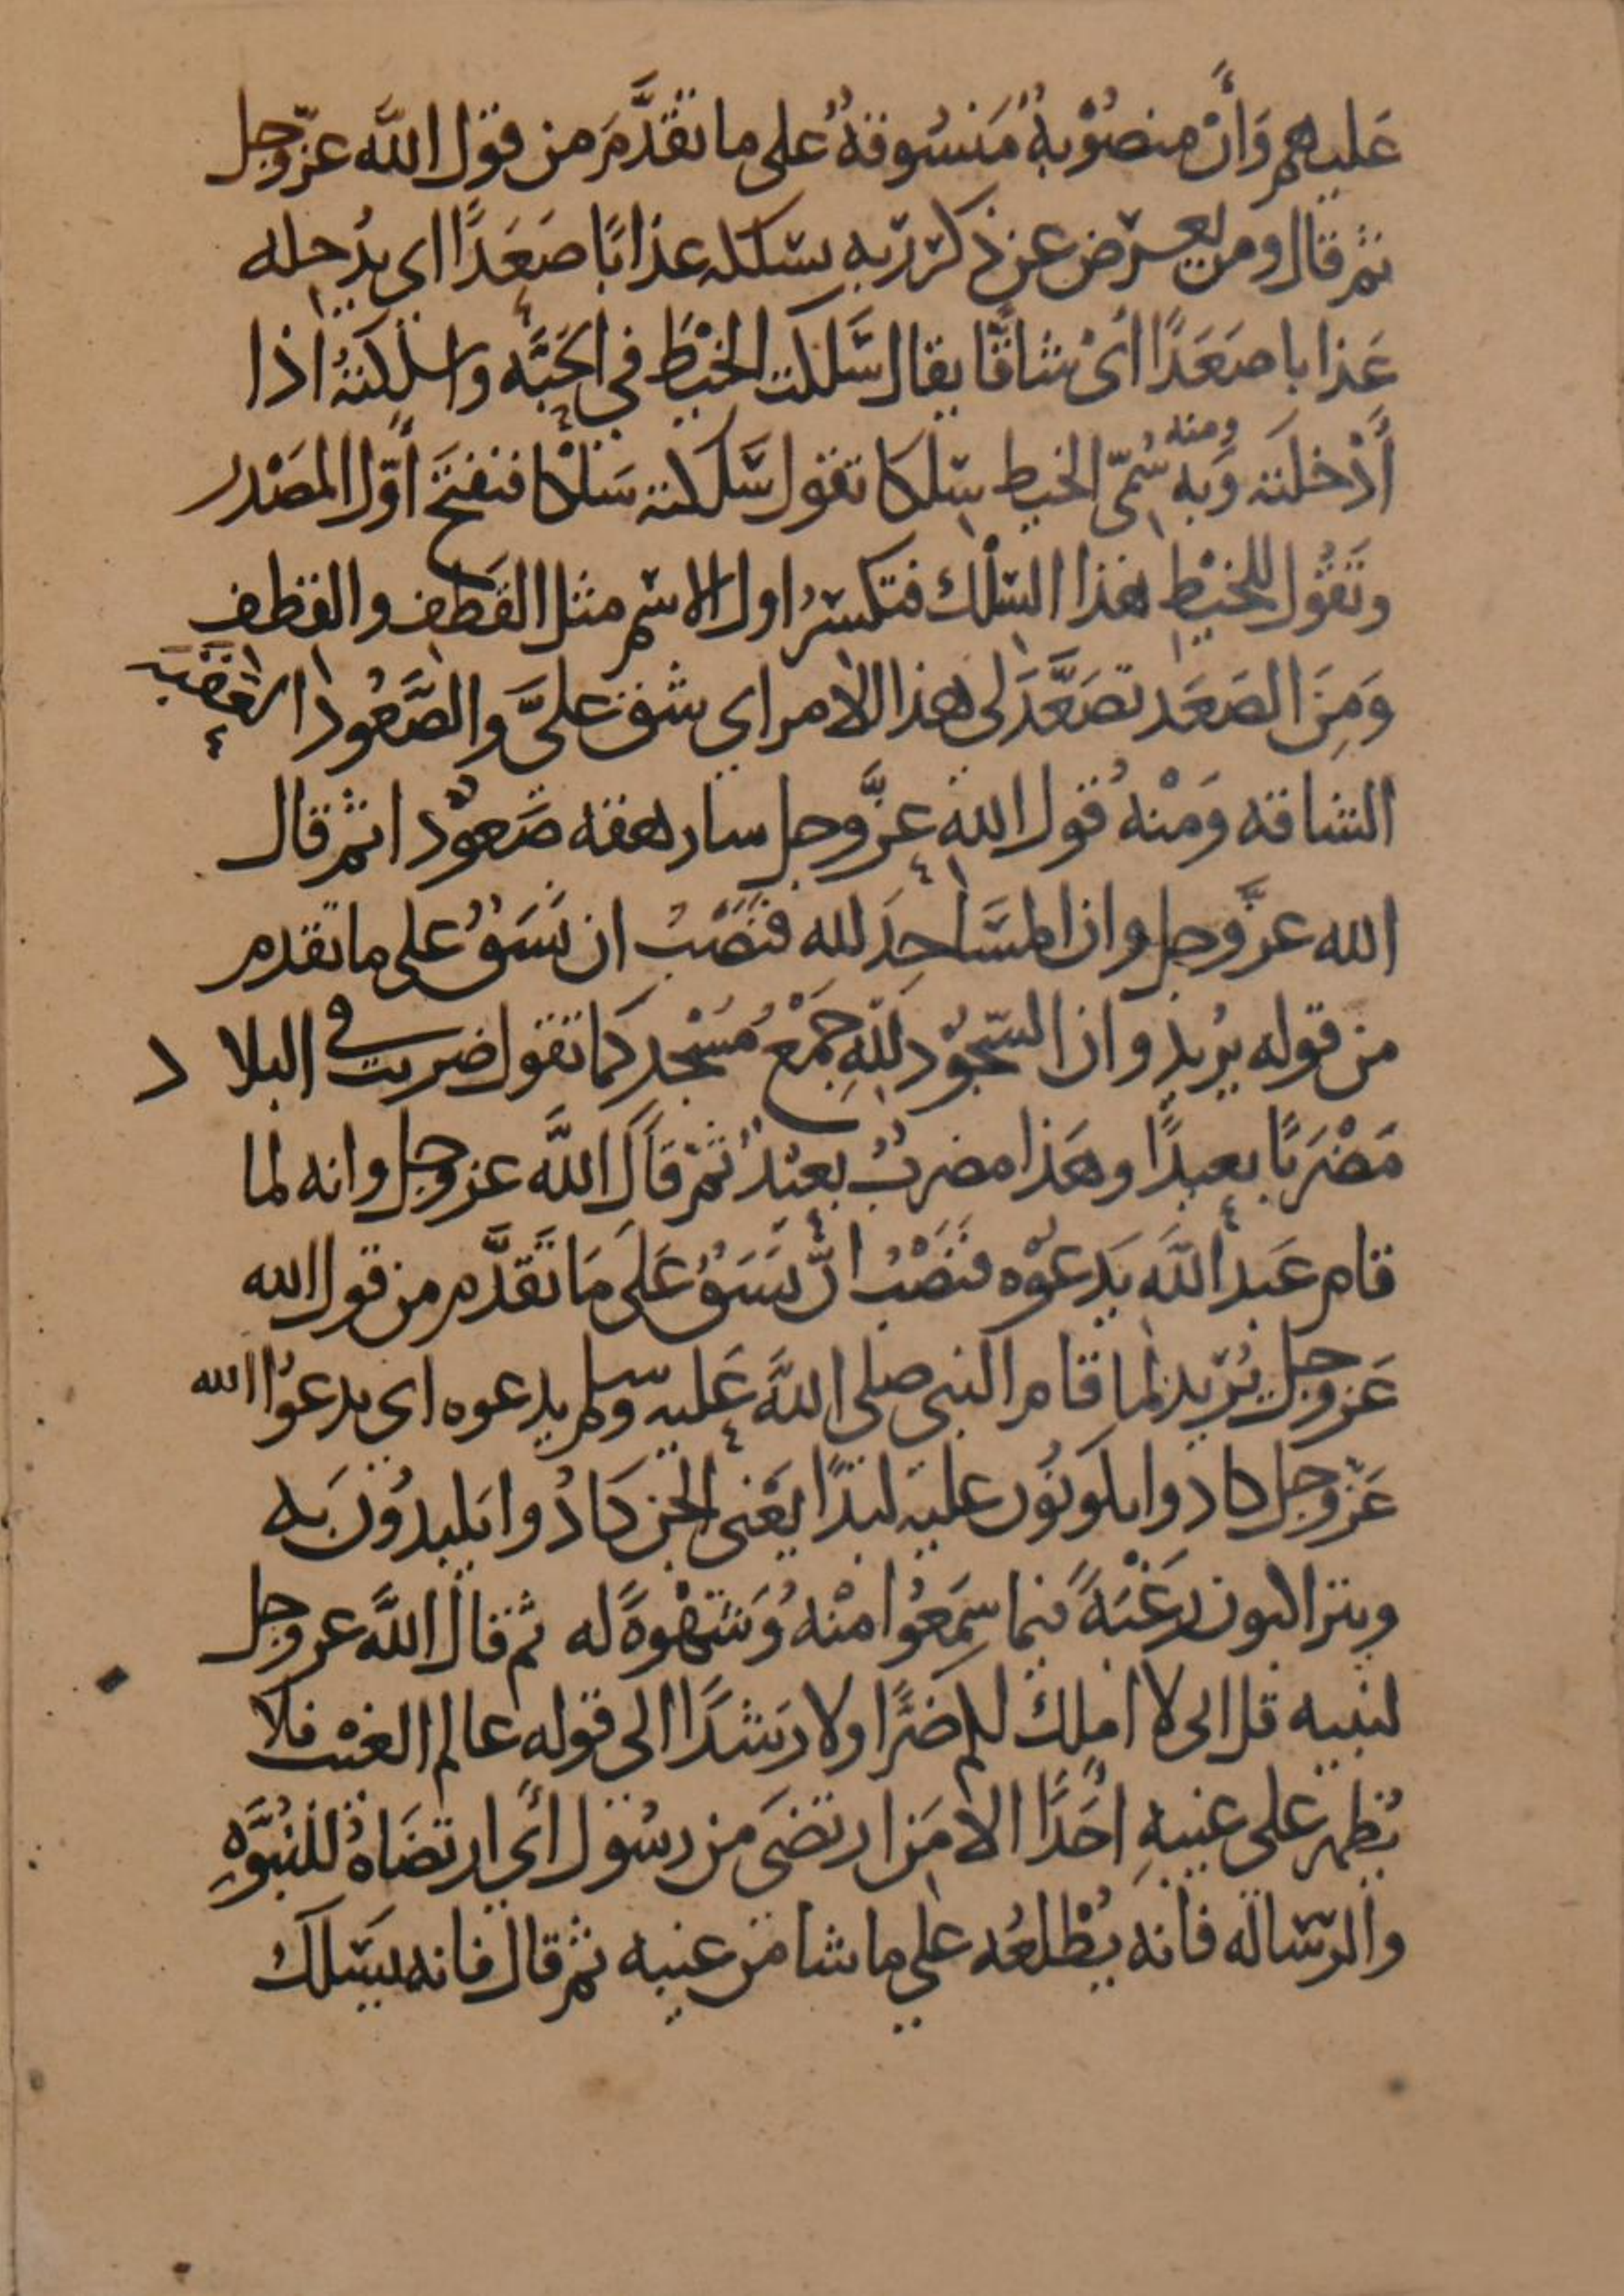 عَليهم وَأنْ منصُوْبةٌ مَنسُوقةٌ على ما تقدَّمَ من قول الله عزّ وجل
ثم قال ومن يعرض عن ذكر ربه يسلكه عذابًا صَعَدًا اي يُدخله
عَذابا صَعَدًا اىْ شاقًا يقال سَلكت الخيْطَ في الحَبَّه واسلكتهُ اذا
أَدْخلته وَبه ومنه سُمّى الخيط سِلكا تقول سَلكته سَلْكا فتفتحَ أوّل المصْدر
وتَقُول للخيْطِ هذا السِلْك فتكسرُ اول الاسم مثل القَطف والقِطف
وَمِنَ الصَعَد تصَعَّدَ لى هذا الامر اي شق علىَّ والصَّعُود العقبة
الشاقه وَمنْهُ قول الله عزَّ وجل سارهقه صَعوْدا ثم قال
الله عزَّ وجل وان المسَاجِدَ لله فنَصْبُ ان نَسَقٌ على ما تقدم
من قوله يُريد وان السّجُوْد للهِ جَمْعُ مَسْجد كما تقول ضربت في البلاد
مَضْرَبًا بعيدًا وهَذا مضربٌ بعيْدٌ ثمّ قاَل اللَّه عز وجل وانه لما
قام عَبد اللَّه يَدعوْه فنَصْبُ انَّ نَسَقٌ عَلَى مَا تَقدَّم من قول الله
عَز وجل يُريد لما قام النبي صلى اللَّه عَليه وسلم يدعوه اي يدعوُا الله
عَزّ وجل كادوا يكونُون عليه لبَدًا يَعْنى الجن كَادُوا يَلبدُوْنَ به
ويتراكبون رَغْبَةً فيما سَمِعُوا منْهُ وَشَهْوةً له ثم قال اللَّه عز وجل
لنبيه قل انى لا املك لكم ضرًّا ولا رَشدًا الى قوله عالم الغيْب فلا
يُظهر على غيبهِ احَدًا الا مَن ارتضَى من رسُول أي ارتضَاهُ للنُبُوَّهِ
والرّساله فانه يُطْلعُه على ما شا من غيبه ثم قال فانه يسَلكُ